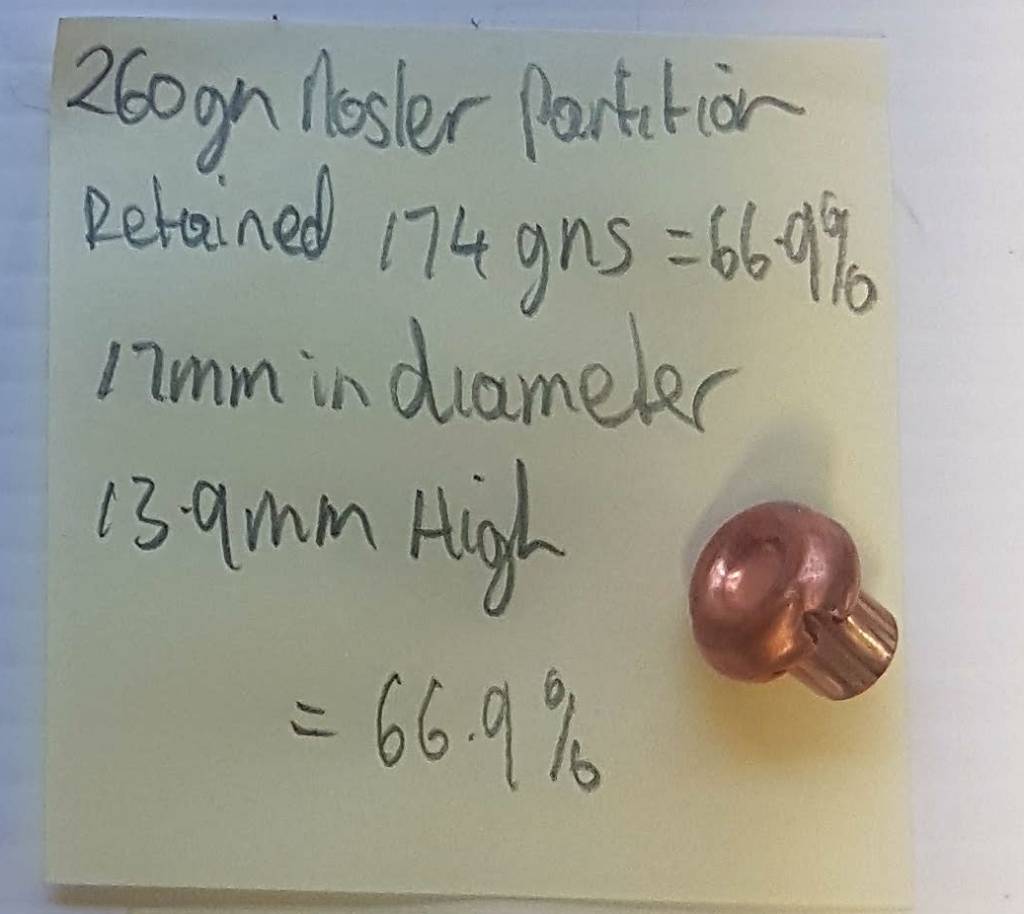 260gn Nosler Partition
Retained 174 gns = 66.9%
17mm in diameter
13.9mm High
= 66.9%